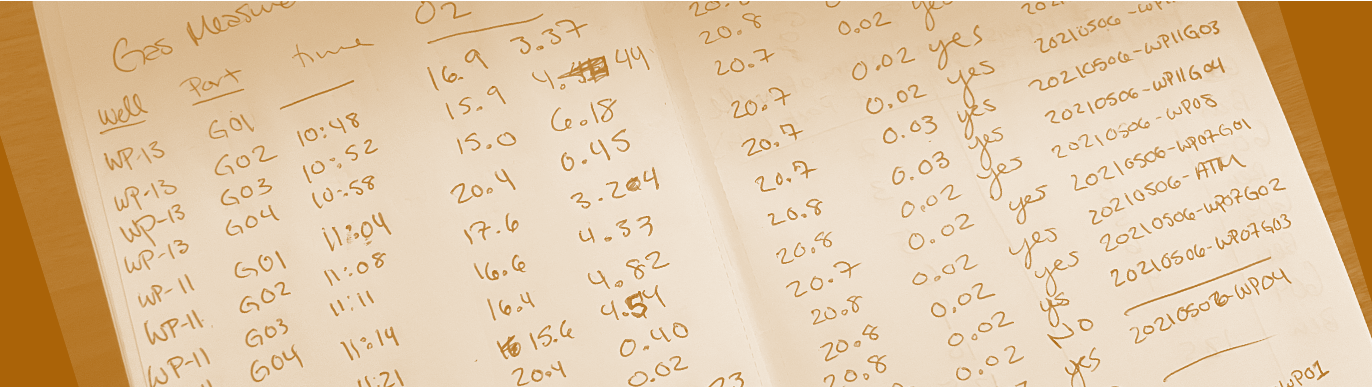 Gas Measure
O2
Well Port time
WP-13 G01 10:48 16.9 3.37
WP-13 G02 10:52 15.9 4.44
WP-13 G03 10:58 15.0 6.18
WP-13 G04 11:04 20.4 0.45
WP-11 G01 11:08 17.6 3.204
WP-11 G02 11:11 16.6 4.33
WP-11 G03 11:14 16.4 4.82
G04 11:21 15.6 4.54
20.4 0.40
0.02
23
20.8
20.7 0.02 yes
20.7 0.02 yes
20.7 0.02 yes 20210506-WP11G03
20.7 0.03 yes 20210506-WP11G04
20.8 0.03 yes 20210506-WP08
20.8 0.02 yes 20210506-WP07G01
20.7 0.02 yes 20210506-ATM
20.8 0.02 yes 20210506-WP07G02
20.8 0.02 yes 20210506-WP07G03
20.8 0.02 ys
0.02 No
yes 20210506-WP04
WP01